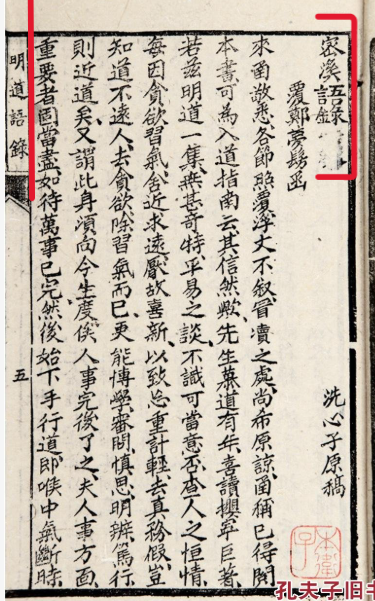 密溪語錄
洗心子原稿
覆鄭夢髯函
來函敬悉各節照覆浮文不叙冒瀆之處尚希原諒函稱已得閱
本書可為入道指南云其信然歟先生慕道有年喜讀櫻寧巨著
若茲明道一集無甚奇特平易之談不識可當意否查人之恒情
每因貪欲習氣舍近求遠厭故喜新以致忘重計輕去真務假豈
知道不遠人去貪欲除習氣而已更能博學審問慎思明辨篤行
則近道矣又謂此身須向今生度俟人事完後了之夫人事方面
重要者固當盡如待萬事已完然後始下手行道即喉中氣斷時
明道語錄
五
孔夫子旧书